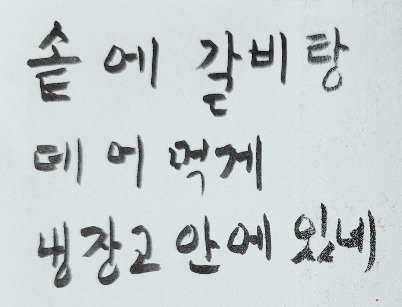 솥에 갈비탕
데어 먹게
냉장고 안에 있네